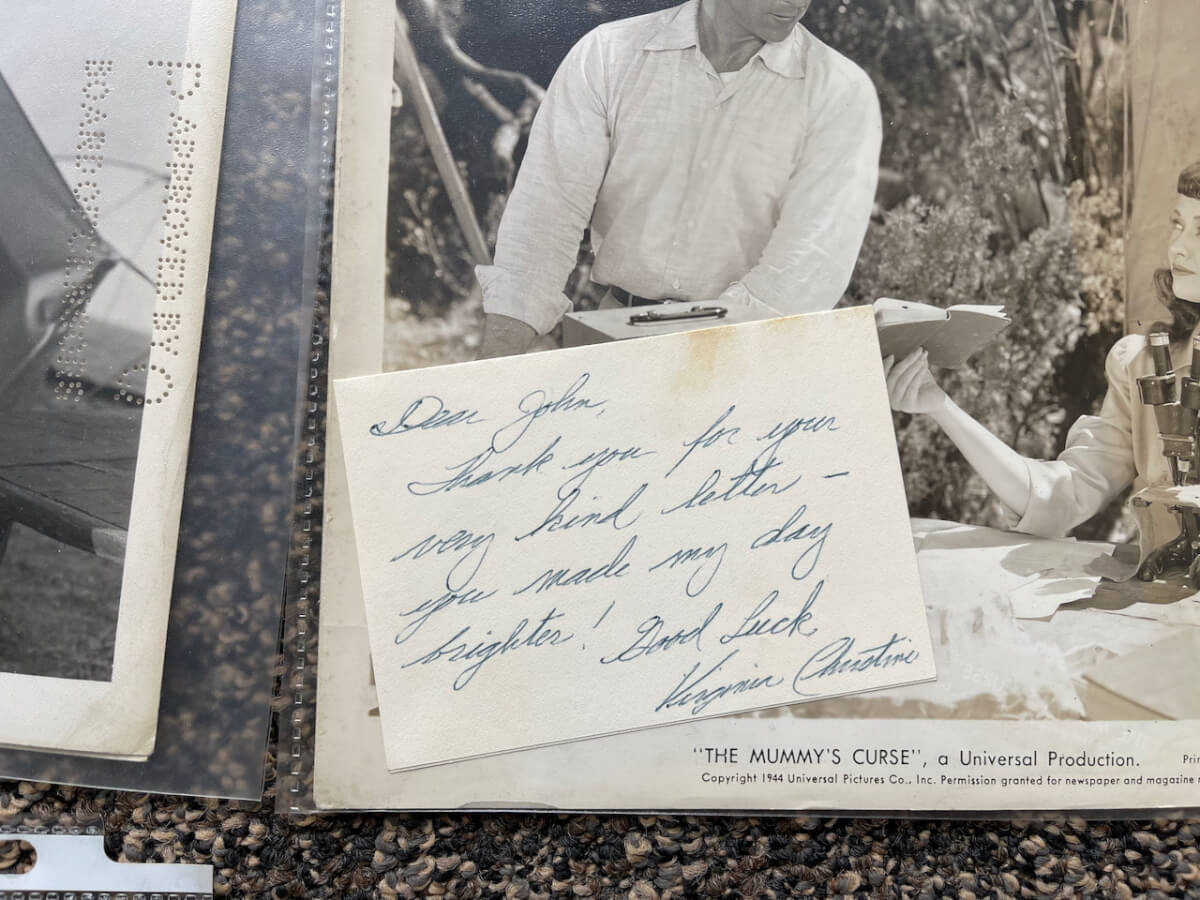 Dear John,
Thank you for your
very kind letter –
you made my day
brighter! Good Luck
Virginia Christine
"THE MUMMY'S CURSE", a Universal Production.
Copyright 1944 Universal Pictures Co., Inc. Permission granted for newspaper and magazine